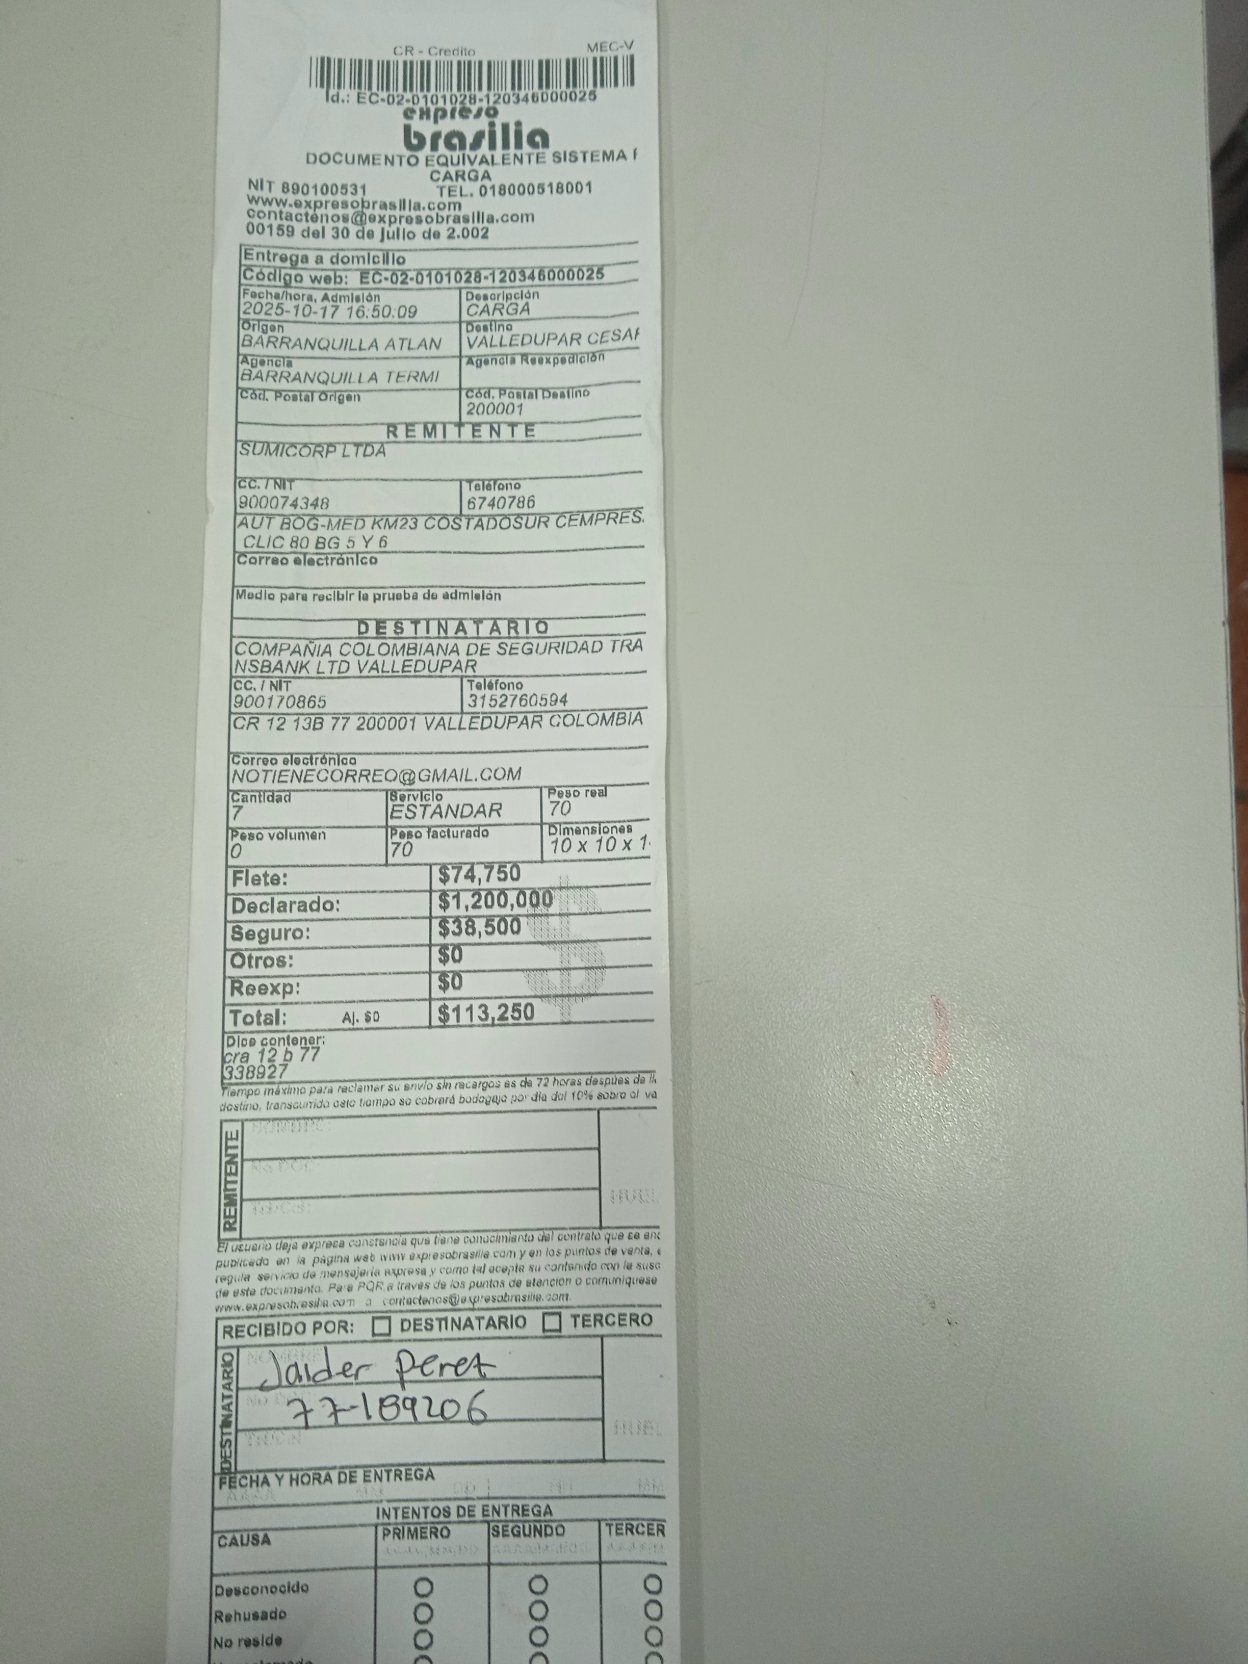 CR - Credito MEC-V
Id.: EC-02-0101028-120346000025
expreso
brasilia
DOCUMENTO EQUIVALENTE SISTEMA
CARGA
NIT 890100531 TEL. 018000518001
www.expresobrasilia.com
contactenos@expresobrasilia.com
00159 del 30 de julio de 2.002
Entrega a domicilio
Código web: EC-02-0101028-120346000025
Fecha/hora, Admisión Descripción
2025-10-17 16:50:09 CARGA
Origen Destino
BARRANQUILLA ATLAN VALLEDUPAR CESAR
Agencia Agencia Reexpedición
BARRANQUILLA TERMI
Cód. Postal Origen Cód. Postal Destino
200001
REMITENTE
SUMICORP LTDA
CC. / NIT Teléfono
900074348 6740786
AUT BOG-MED KM23 COSTADOSUR CEMPRES.
CLIC 80 BG 5 Y 6
Correo electrónico
Medio para recibir la prueba de admisión
DESTINATARIO
COMPAÑIA COLOMBIANA DE SEGURIDAD TRA
NSBANK LTD VALLEDUPAR
CC. / NIT Teléfono
900170865 3152760594
CR 12 13B 77 200001 VALLEDUPAR COLOMBIA
Correo electrónico
NOTIENECORREO@GMAIL.COM
Cantidad Servicio Peso real
7 ESTANDAR 70
Peso volumen Peso facturado Dimensiones
0 70 10 x 10 x 1
Flete: $74,750
Declarado: $1,200,000
Seguro: $38,500
Otros: $0
Reexp: $0
Total: Aj. $0 $113,250
Dice contener:
cra 12 b 77
338927
Tiempo máximo para reclamar su envío sin recargos es de 72 horas después de
destino, transcurrido este tiempo se cobrará bodegaje por día del 10% sobre el va
REMITENTE
No DOC
HUEL
El usuario deja expresa constancia que tiene conocimiento del contrato que se enc
publicado en la página web www.expresobrasilia.com y en los puntos de venta,
regula servicio de mensajería expresa y como tal acepta su contenido con la susc
de este documento. Para PQR a través de los puntos de atención o comuníquese
www.expresobrasilia.com o contactenos@expresobrasilia.com.
RECIBIDO POR: DESTINATARIO TERCERO
DESTINATARIO
Jaider Peret
77-189206
HUEL
FECHA Y HORA DE ENTREGA
INTENTOS DE ENTREGA
CAUSA PRIMERO SEGUNDO TERCER
Desconocido
Rehusado
No reside